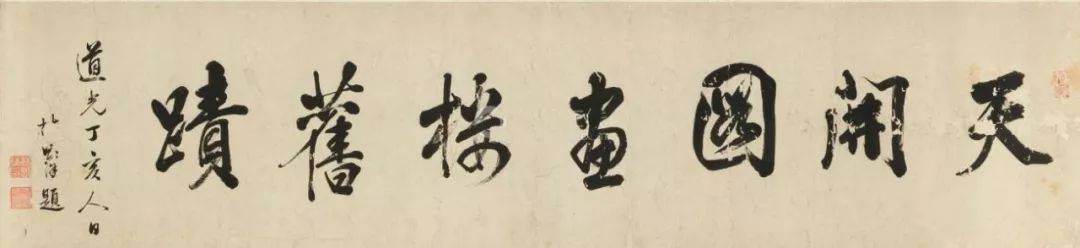 天開圖畫樓舊蹟
道光丁亥人日
題